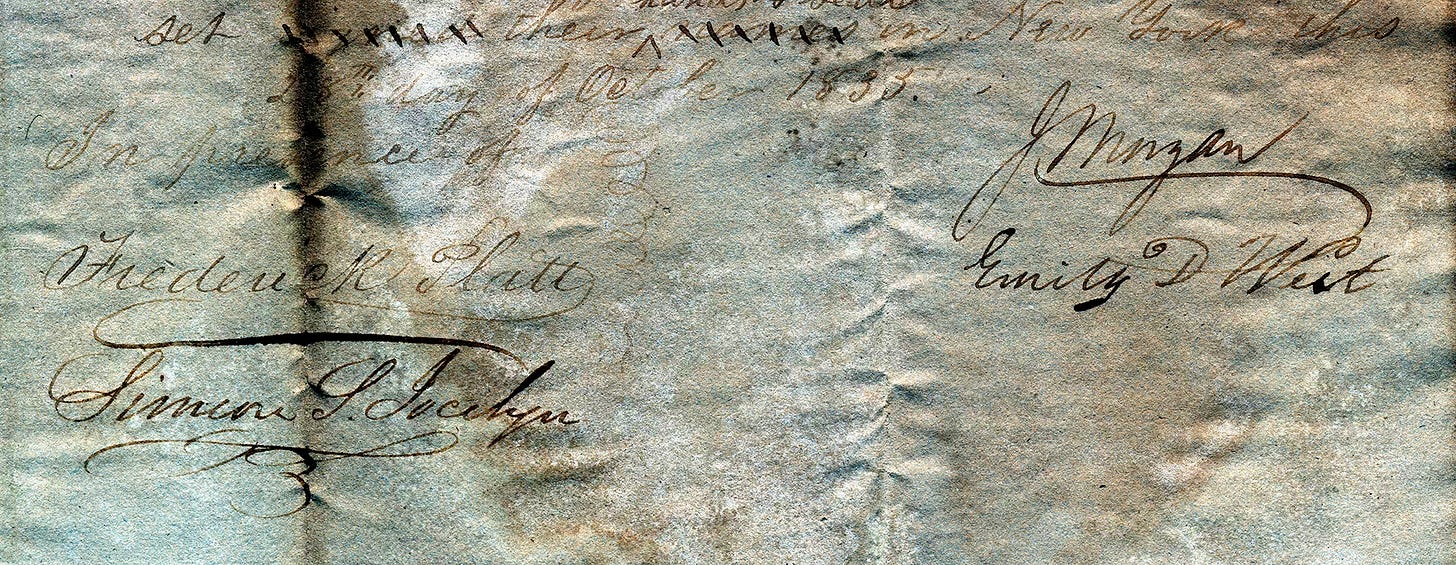 hands & seals
set their in New York this
25th day of October 1835.
In presence of
J Morgan
Emily D West
Frederick Platt
Simeon S. Jocelyn